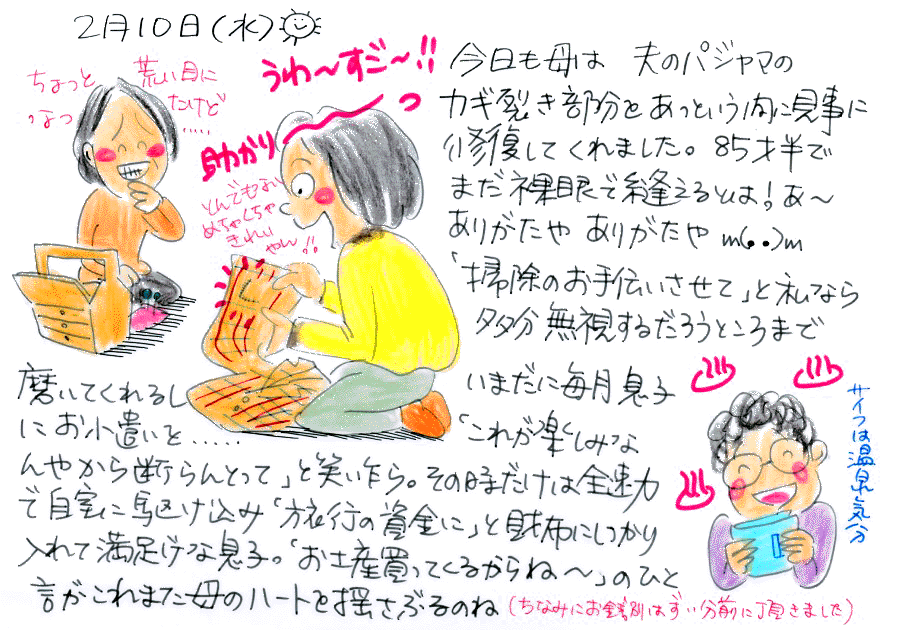 2月10日(水)
ちょっと
荒い目に
なっ
たけど
.....
うわ〜すご〜!!
っ
助かり
とんでもない
めちゃくちゃ
きれい
やん!!
今日も母は 夫のパジャマの
カギ裂き部分をあっという間に見事に
修復してくれました。85才半で
まだ裸眼で縫えるとは!あ〜
ありがたや ありがたや m(..)m
「掃除のお手伝いさせて」と私なら
多分無視するだろうところまで
磨いてくれるし いまだに毎月息子
にお小遣いを..... 「これが楽しみな
んやから断らんとって」と笑い乍ら。その時だけは全速力
で自室に駆け込み「旅行の資金に」と財布にしっかり
入れて満足げな息子。「お土産買ってくるからね〜」のひと
言がこれまた母のハートを揺さぶるのね(ちなみにお餞別はずい分前に頂きました)
サイフは温泉気分